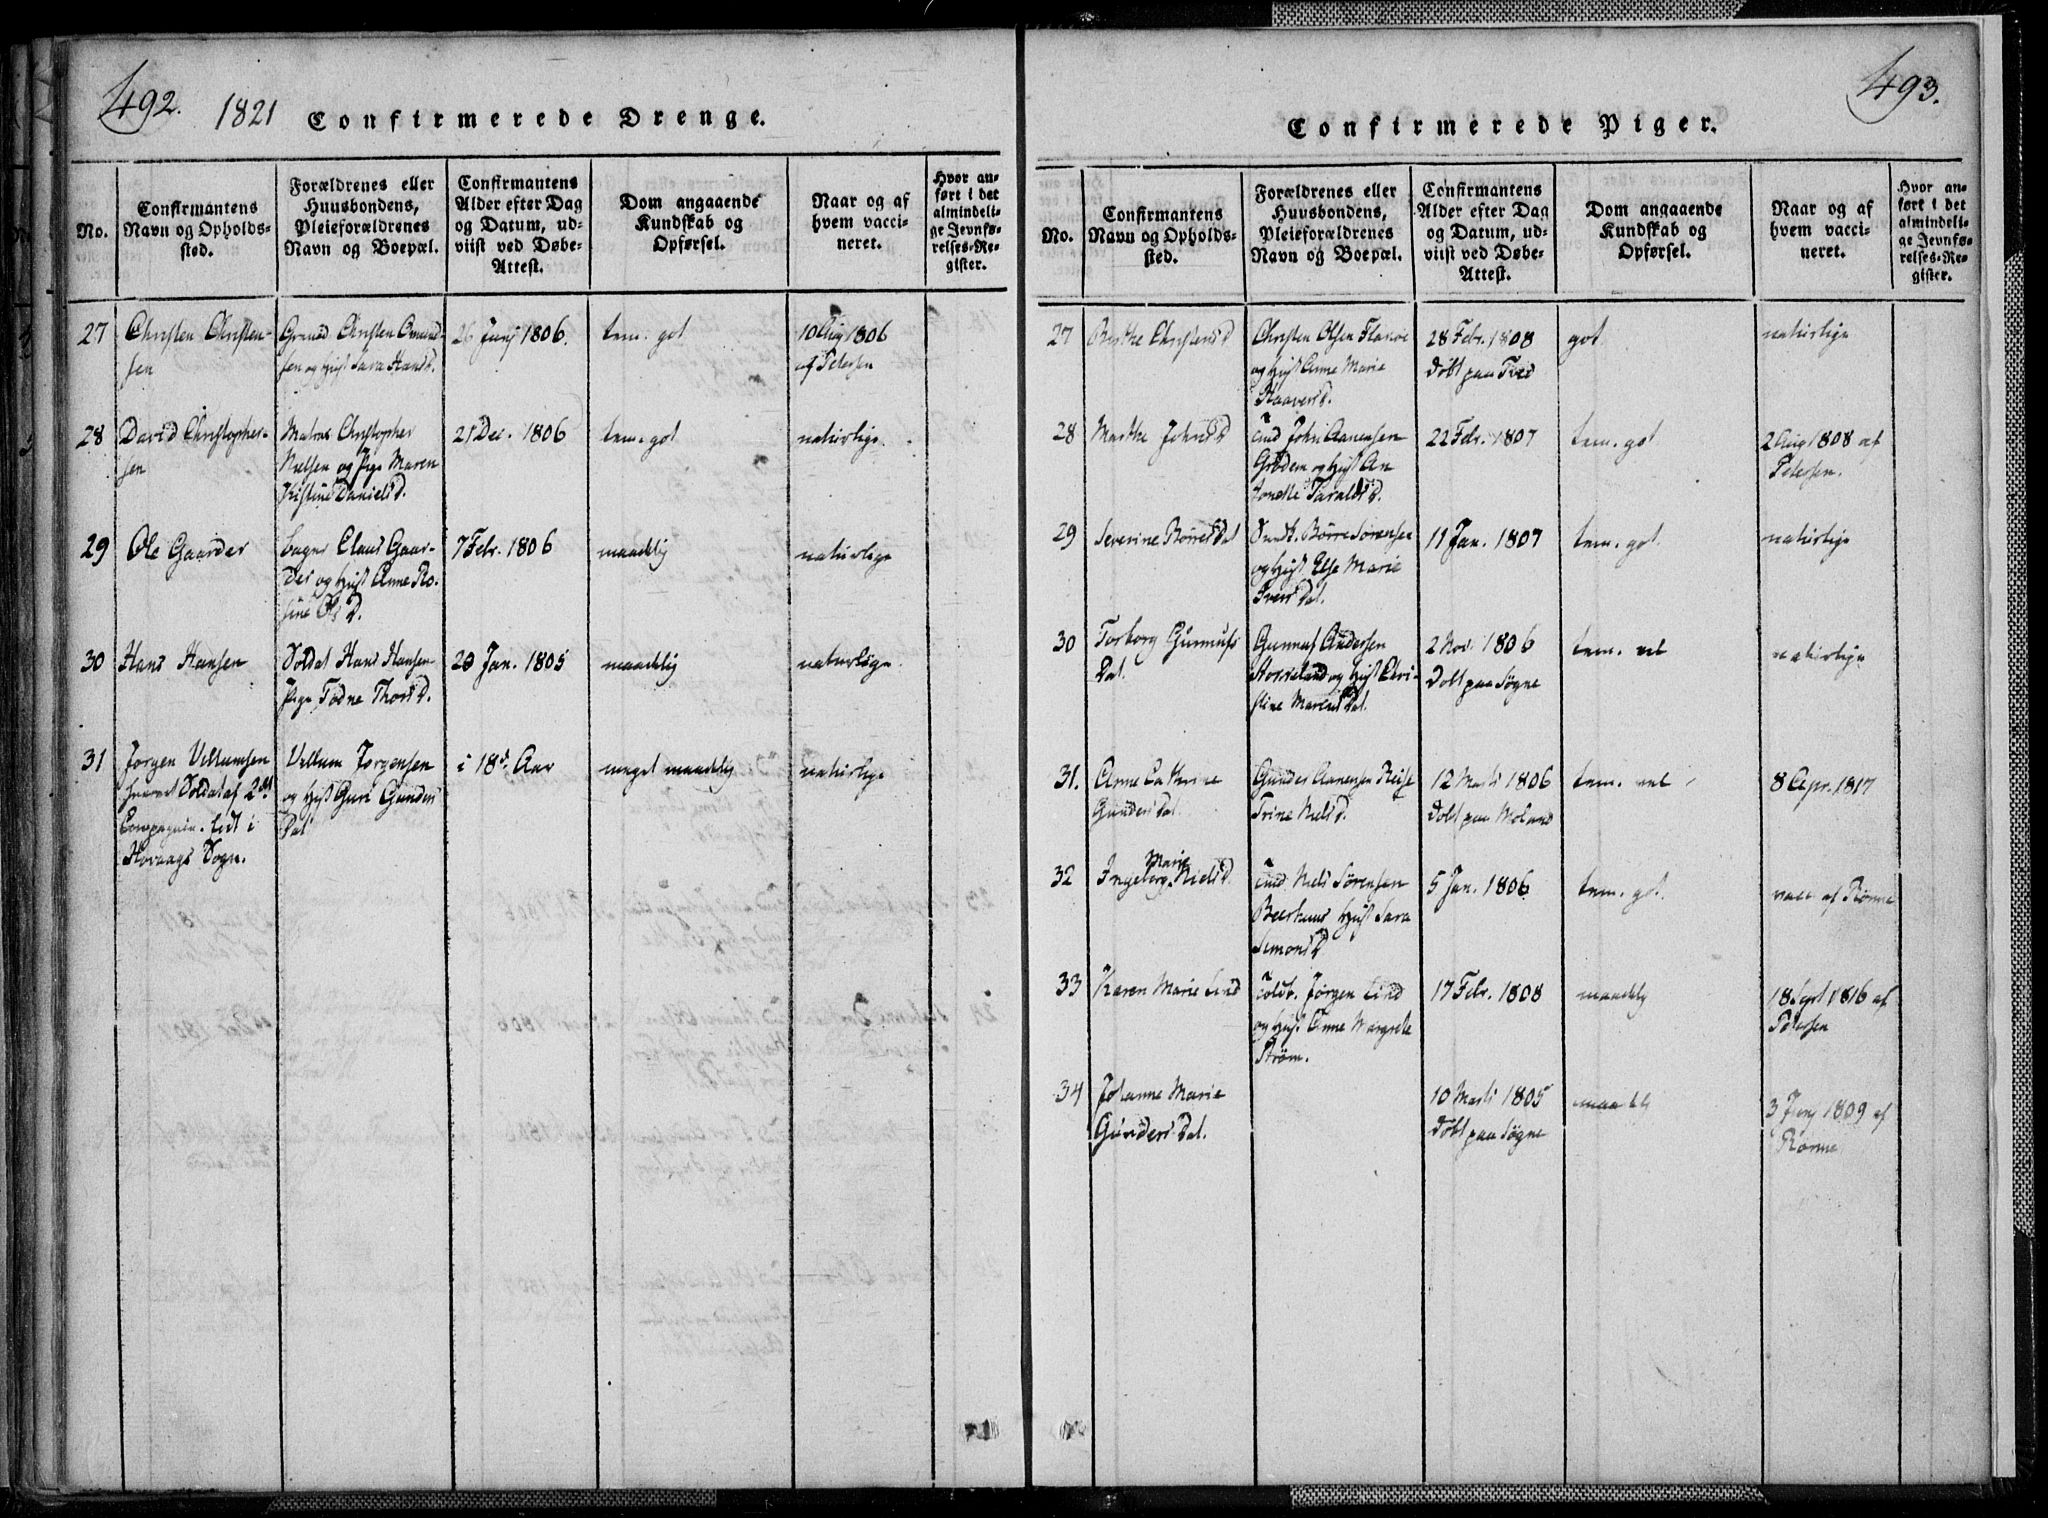 492.
1821
Confirmerede Drenge.
No.
Confirmantens
Navn og Opholds-
sted.
Forældrenes eller
Huusbondens,
Pleieforældrenes
Navn og Boepæl.
Confirmantens
Alder efter Dag
og Datum, ud-
viist ved Døbe-
Attest.
Dom angaaende
Kundskab og
Opførsel.
Naar og af
hvem vacci-
neret.
Hvor an-
ført i det
almindeli-
ge Jevnfø-
relses-Re-
gister.
27
Christen Christen-
sen
Christen
sen og Hust Sara Hansd.
26 Junj 1806.
tem. got
10 Aug 1806
af Petersen
28
David Christopher-
sen
Matros Christopher
Nielsen og Pige Maren
Kistine Daniels D.
21 Dec. 1806
tem. got
naturlige
29
Ole Gaarder
Bager Claus Gaar-
der og Hust Anne Ro-
sine Ols D.
7 Febr. 1806
maadelig
naturlige
30
Hans Hansen
Soldat Hans Hansen
Pige Todne Thors D.
20 Jan. 1805
maadelig
naturlige
31
Jørgen Villumsen
Soldat af 2den
Compagnie. født i
Hovaags Sogn.
Villum Jørgensen
og Hust Guri Gunders
Dat
i 18d. Aar
meget maadelig
naturlige
493.
Confirmerede Piger.
No.
Confirmantens
Navn og Opholds-
sted.
Forældrenes eller
Huusbondens,
Pleieforældrenes
Navn og Boepæl.
Confirmantens
Alder efter Dag
og Datum, ud-
viist ved Døbe-
Attest.
Dom angaaende
Kundskab og
Opførsel.
Naar og af
hvem vacci-
neret.
Hvor an-
ført i det
almindeli-
ge Jevnfø-
relses-Re-
gister.
27
Berthe Christens D
Christen Olsen Flarøe
og Hust Anne Marie
Haavers D.
28 Febr. 1808
døbt paa Tved
got
naturlige
28
Marthe Johns D
John Aanensen
Grødem og Hust An
tonette Taralds D.
22 Febr. 1807
tem. got
2 Aug 1808 af
Petersen.
29
Severine Børres Dat
Børre Sørensen
og Hust Else Marie
Ivers Dat.
11 Jan. 1807
tem. got.
naturlige
30
Torborg Gunnufs
Dat.
Gunnuf Andersen
og Hust Chri-
stine Marcus Dat.
2 Nov. 1806
Døbt paa Søgne
tem. vel
naturlige
31.
Anne Cathrine
Gunders Dat.
Gunder Aanensen Reise
Trine Niels D.
12 Marti 1806
Døbt paa Moland
tem. vel
8 Apr. 1817
32
Marie
Ingeborg Niels D.
Niels Sørensen
Beerhuus Hust Sara
Simons D
5 Jan. 1806
tem. got.
vacc af Rønne
33
Karen Marie Lind
Jørgen Lind
og Hust Anne Margrete
Strøm.
17 Febr. 1808
maadelig
18 Sept 1816 af
Petersen
34
Johanne Marie
Gunders Dat.
10 Marti 1805
døbt paa Søgne
maadel
3 Junj 1809 af
Rønne